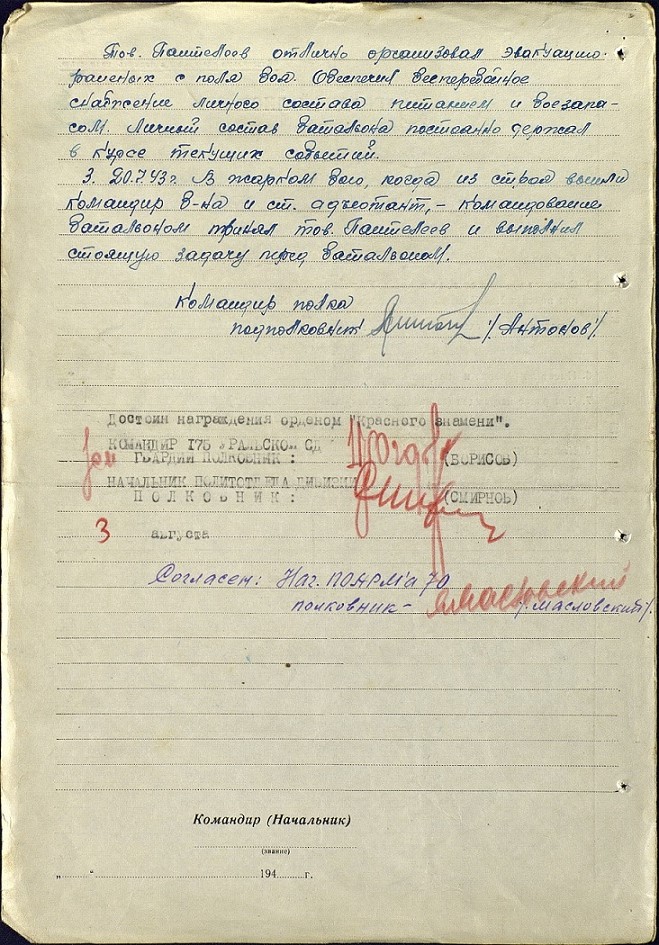 Тов. Пантелеев отлично организовал эвакуацию
раненых с поля боя. Обеспечил бесперебойное
снабжение личного состава питанием и боезапа-
сом. Личный состав батальона постоянно держал
в курсе текущих событий.
3. 20.7.43г. В жарком бою, когда из строя вышли
командир б-на и ст. адъютант,- командование
батальоном принял тов. Пантелеев и выполнил
стоящую задачу перед батальоном.
Командир полка
подполковник /Антонов/.
Достоин награждения орденом "Красного знамени".
КОМАНДИР 175 УРАЛЬСКОЙ СД
ГВАРДИИ ПОЛКОВНИК: (БОРИСОВ)
НАЧАЛЬНИК ПОЛИТОТДЕЛА ДИВИЗИИ
ПОЛКОВНИК: (СМИРНОВ)
3 августа
Согласен: Нач. ПОАРМ'а 70
полковник- Масловский /Масловский/.
Командир (Начальник)
(звание)
„ “ 194 г.